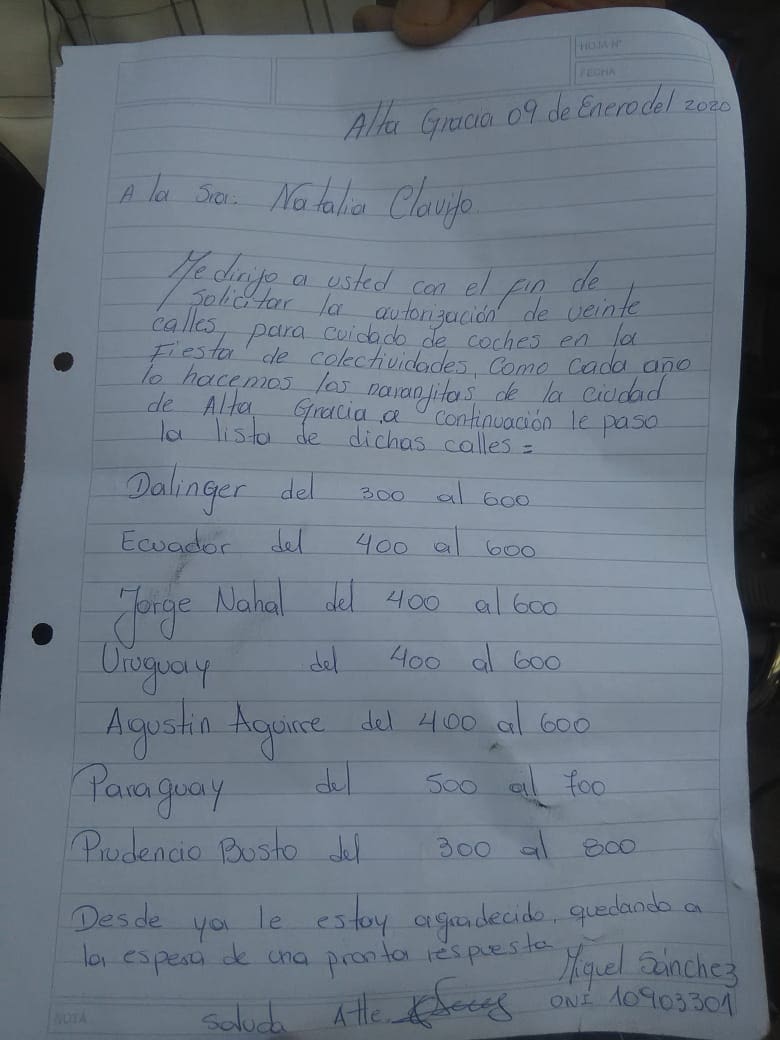 HOJA Nº
FECHA
Alta Gracia 09 de Enero del 2020
A la Sra: Natalia Clavijo.
Me dirijo a usted con el fin de
solicitar la autorización de veinte
calles, para cuidado de coches en la
Fiesta de colectividades, como cada año
lo hacemos los naranjitas de la ciudad
de Alta Gracia, a continuación le paso
la lista de dichas calles =
Dalinger del 300 al 600
Ecuador del 400 al 600
Jorge Nahal del 400 al 600
Uruguay del 400 al 600
Agustin Aguirre del 400 al 600
Paraguay del 500 al 700
Prudencio Busto del 300 al 800
Desde ya le estoy agradecido, quedando a
la espera de una pronta respuesta
Miguel Sánchez
DNI 10903301
Saluda Atte.
NOTA